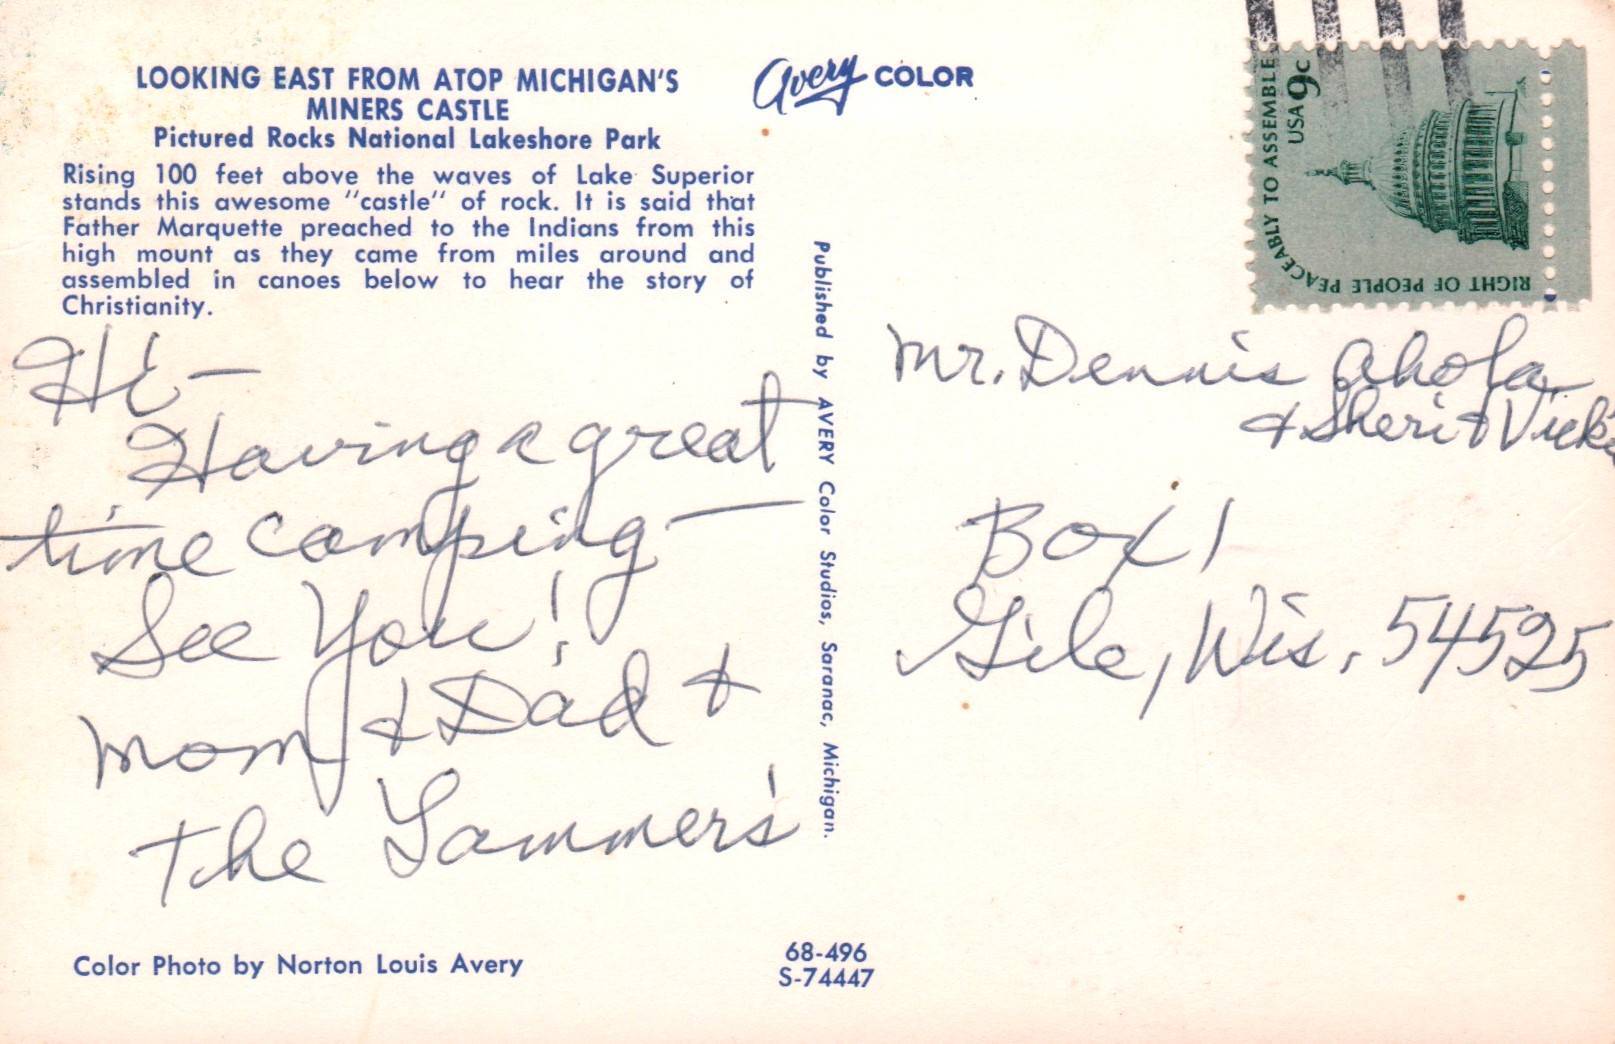 LOOKING EAST FROM ATOP MICHIGAN'S
MINERS CASTLE
Pictured Rocks National Lakeshore Park
Rising 100 feet above the waves of Lake Superior
stands this awesome "castle" of rock. It is said that
Father Marquette preached to the Indians from this
high mount as they came from miles around and
assembled in canoes below to hear the story of
Christianity.
Hi—
Having a great
time camping—
See You!
Mom & Dad &
The Lammer's
Color Photo by Norton Louis Avery
68-496
S-74447
Avery COLOR
Published by AVERY Color Studios, Saranac, Michigan.
RIGHT OF PEOPLE PEACEABLY TO ASSEMBLE
USA 9c
Mr. Dennis Ahola
& Sheri & Vicki
Box 1
Gile, Wis. 54525